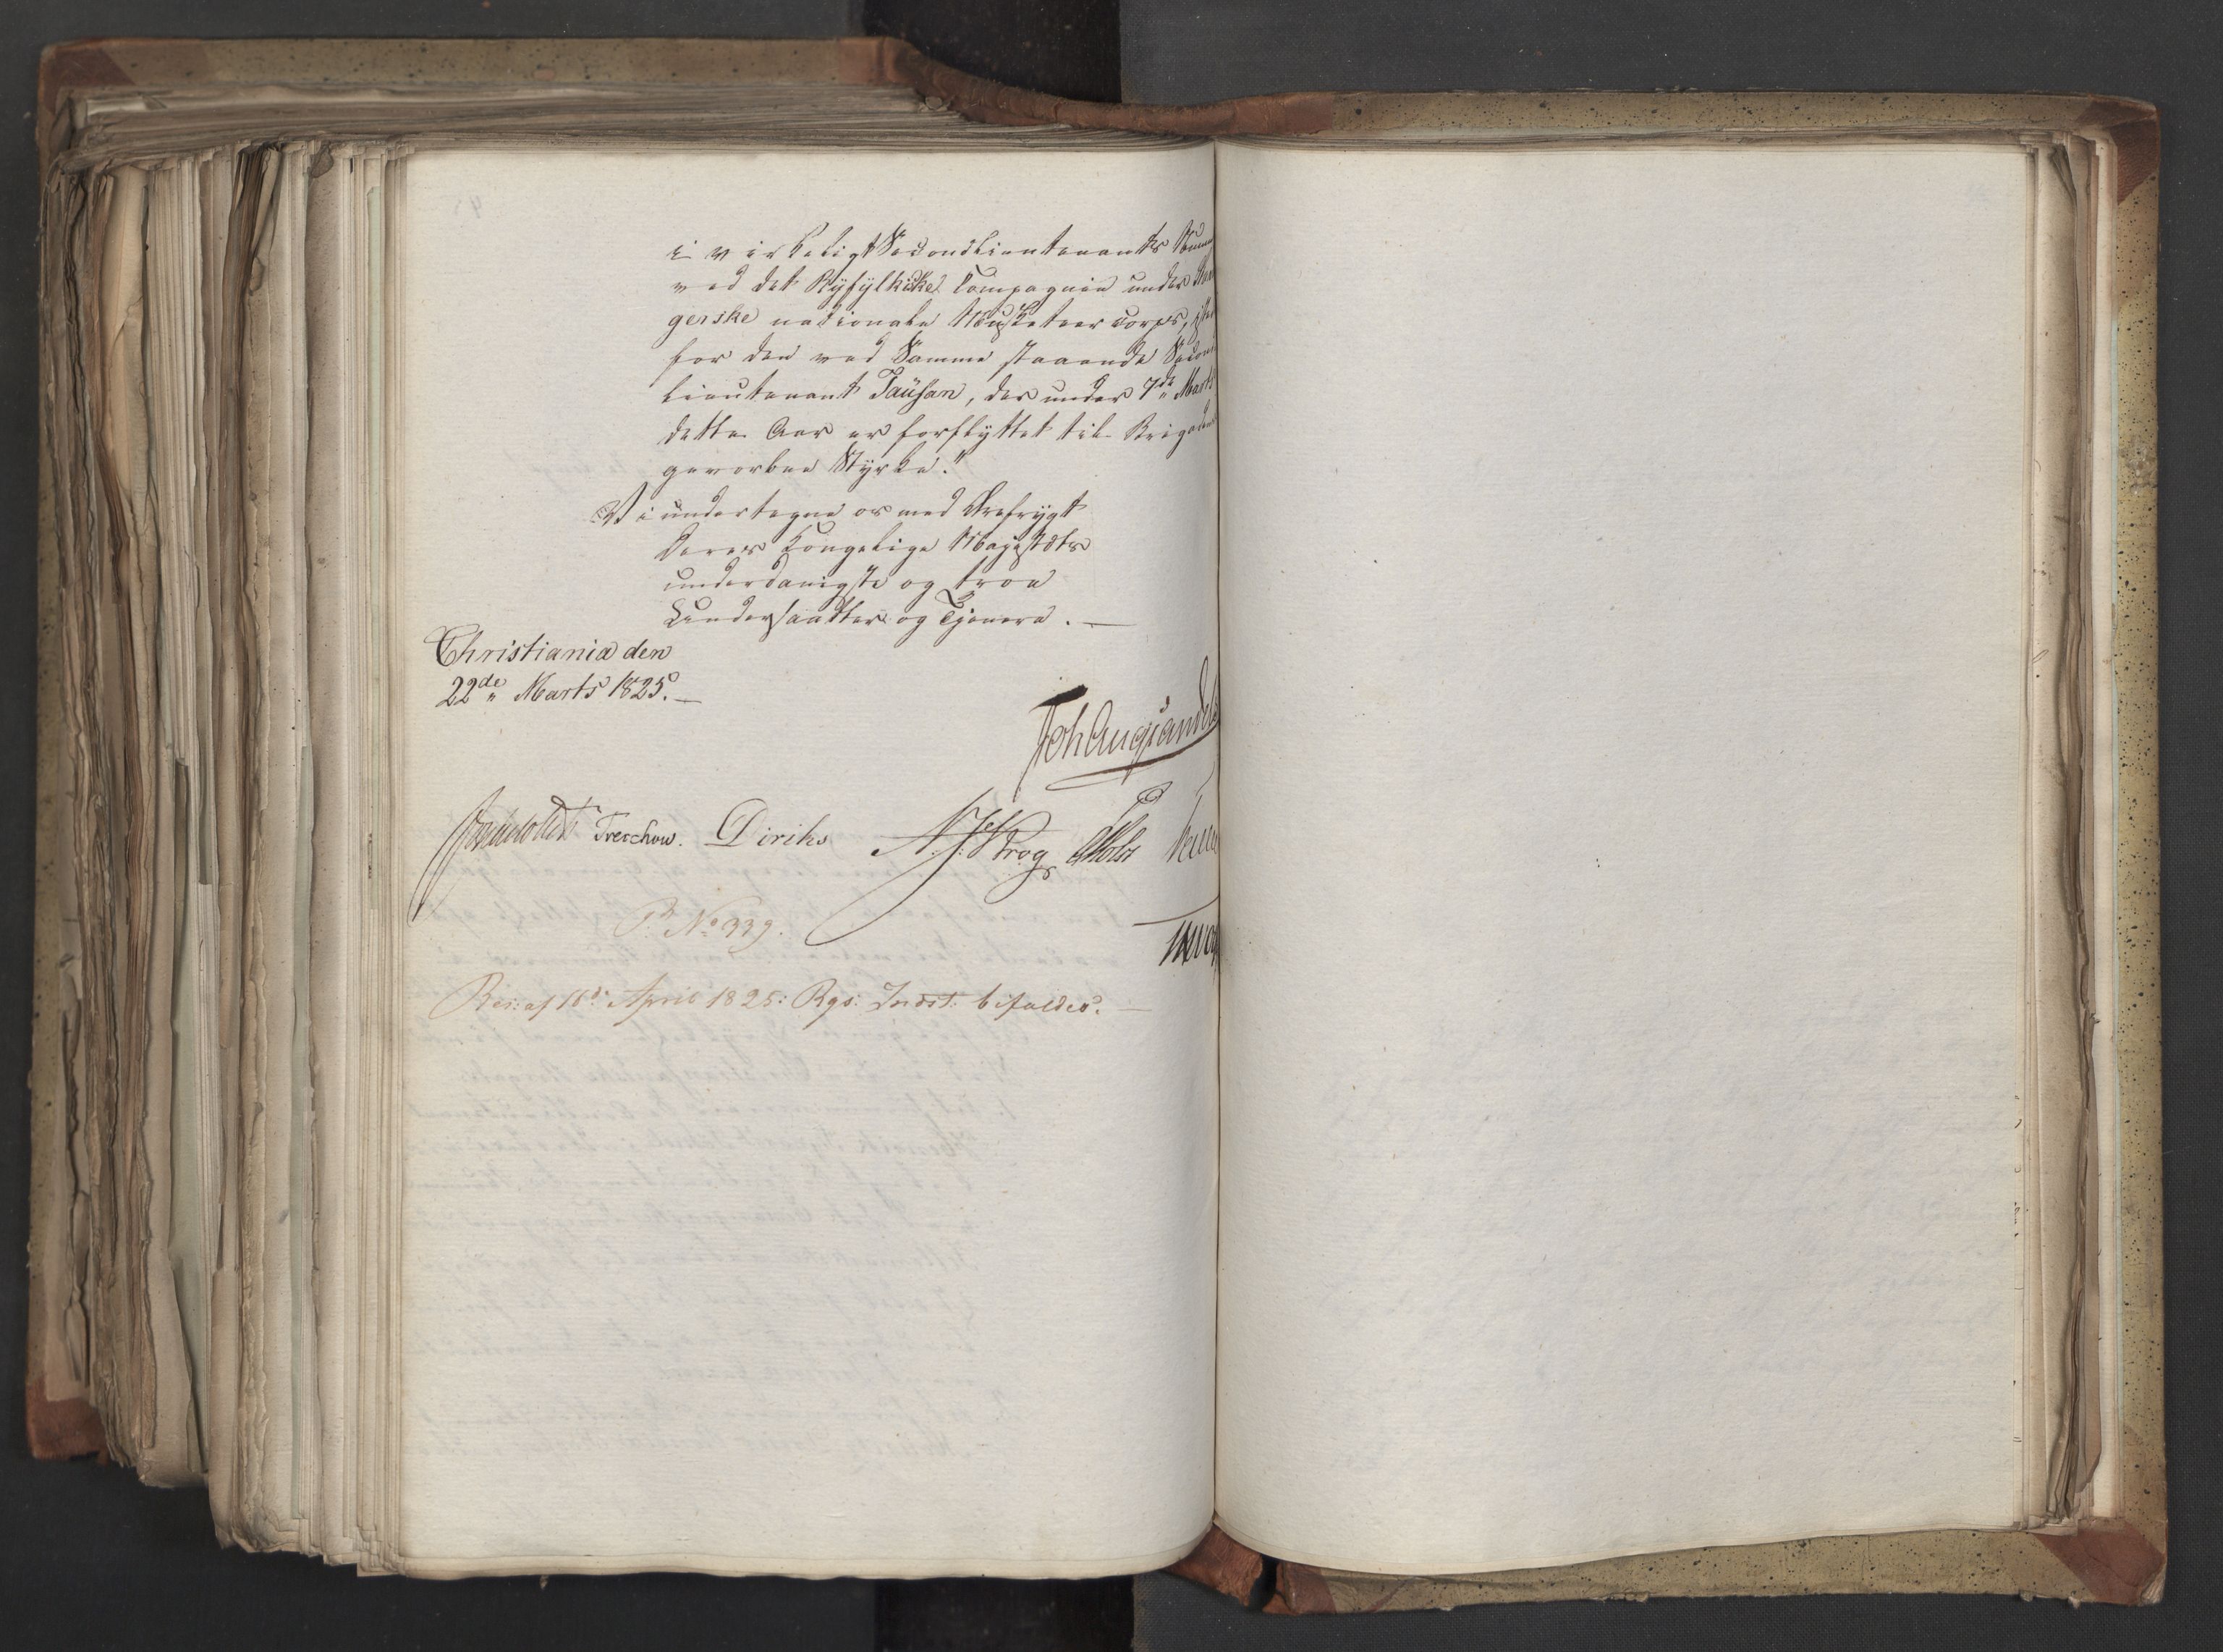 i virkeligt Secondlieutenants
ved det Ryfylkiske Compagnie under
gerske nationale Musketeer Corps,
for den ved Samme staaende Second
Lieutenant Tausan, der under 7de Marts
dette Aar er forflyttet til Brigadens
gevorbne Styrke."
Vi undertegne os med Ærefrygt
Deres Kongelige Majestæts
underdanigste og troe
Undersaatter og Tjenere. —
Christiania den
22de Marts 1825. —
Joh Aug Sandels
Treschow. Diriks Krog Holst
P. No 339.
Res: af 16de April 1825: Rgs: Indst: bifaldes. —